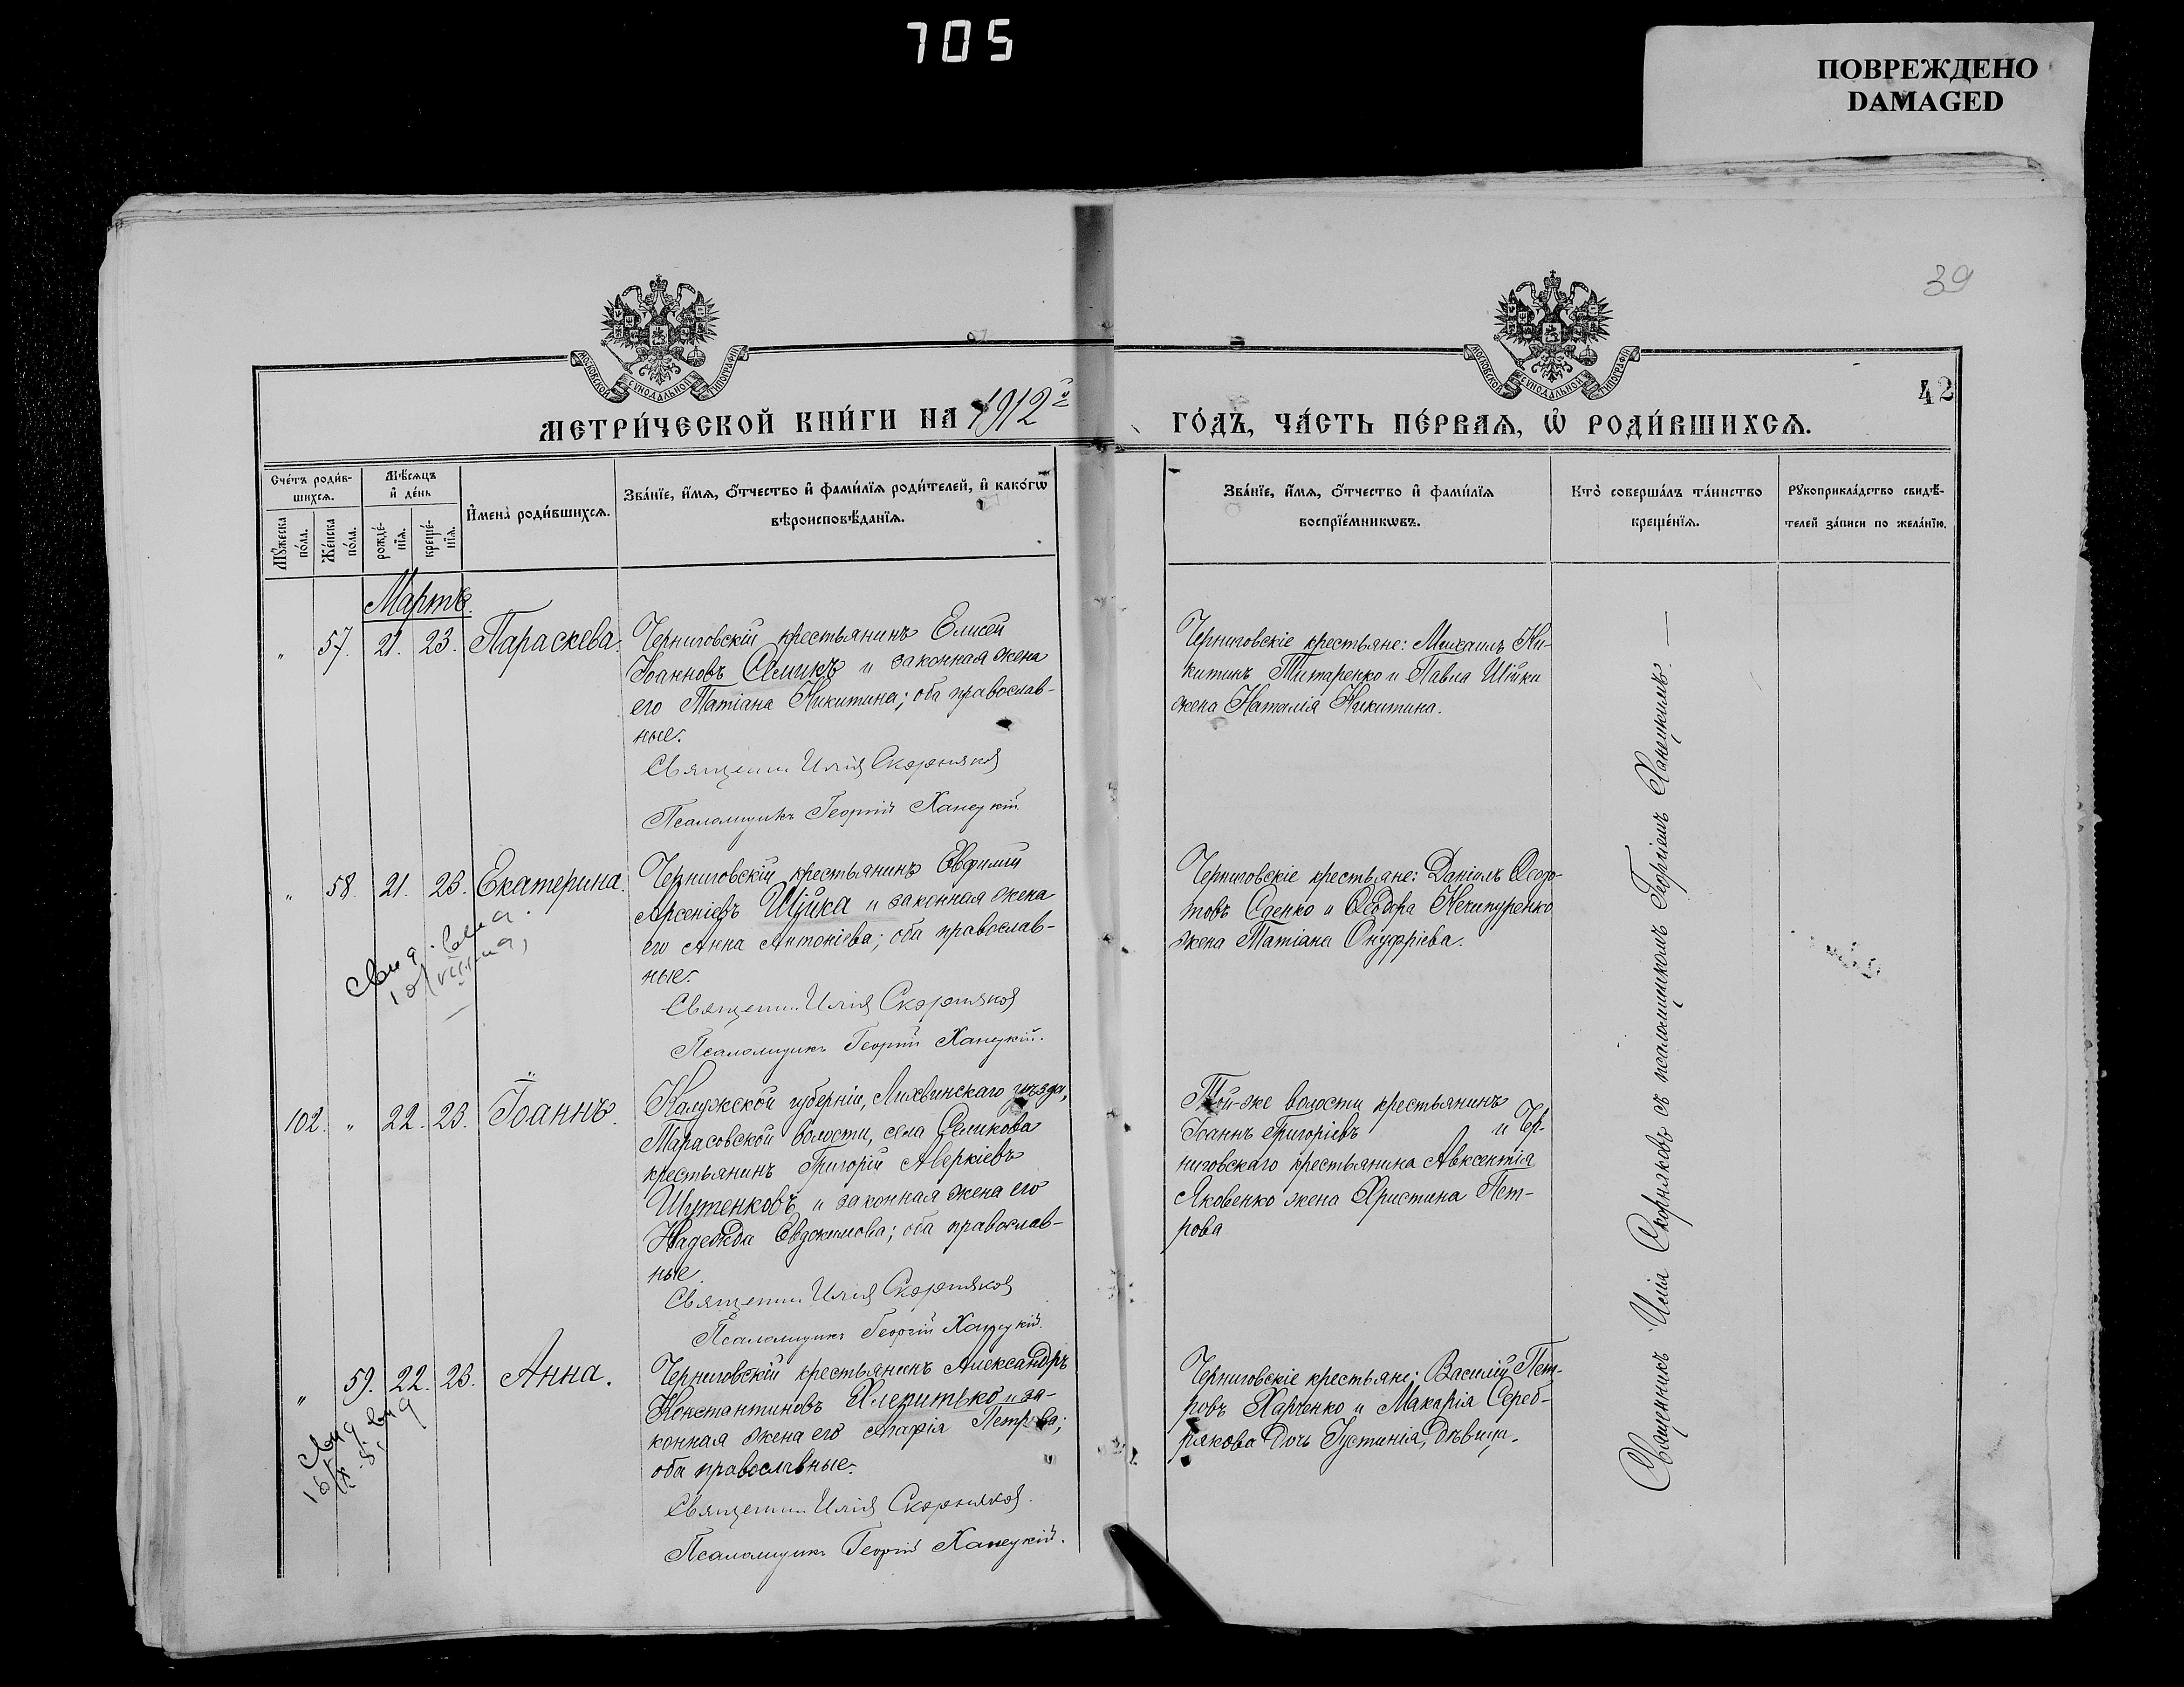 705
ПОВРЕЖДЕНО
DAMAGED
39
42
МОСКОВСКОЙ СѴНОДАЛЬНОЙ ТИПОГРАФІИ
МОСКОВСКОЙ СѴНОДАЛЬНОЙ ТИПОГРАФІИ
МЕТРИ́ЧЕСКОЙ КНИ́ГИ НА 1912й
ГО́ДЪ, ЧА́СТЬ ПЕ́РВАѦ, Ѡ҆ РОДИ́ВШИХСѦ.
Сче́тъ роди́в-
шихсѧ.
Мꙋ́жеска
по́ла.
Же́нска
по́ла.
Мѣ́сѧцъ
и҆ де́нь
рожде́-
нїѧ.
креще́-
нїѧ.
И҆мена̀ роди́вшихсѧ.
Зва́нїе, и҆́мѧ, ѻ҆́тчество и҆ фами́лїѧ роди́телей, и҆ како́гѡ
вѣроисповѣ́данїѧ.
Зва́нїе, и҆́мѧ, ѻ҆́тчество и҆ фами́лїѧ
воспрїе́мникѡвъ.
Кто̀ соверша́лъ та́инство
креще́нїѧ.
Рꙋкоприкла́дство свидѣ́-
телей за́писи по жела́нїю.
Мартъ.
„ 57. 21. 23. Параскева.
Черниговскій крестьянинъ Елисей
Іоанновъ Семикъ и законная жена
его Татіана Никитина; оба православ-
ные.
Священн. Илія Скорняков
Псаломщикъ Георгій Ханецкій
Черниговскіе крестьяне: Михаилъ Ни-
китинъ Титаренко и Павла Шійки
жена Наталія Никитина.
„ 58. 21. 23. Екатерина.
Черниговскій крестьянинъ Евфимій
Арсеніевъ Шійка и законная жена
его Анна Антоніева; оба православ-
ные.
Священн. Илія Скорняков
Псаломщикъ Георгій Ханецкій.
Черниговскіе крестьяне: Даніилъ Ѳедо-
товъ Саенко и Ѳеодора Нечипуренко
жена Татіана Онуфріева.
102. „ 22. 23. Іоаннъ.
Калужской губерніи, Лихвинскаго уѣзда,
Марасовской волости, села Селикова
крестьянинъ Григорій Аверкіевъ
Шутенковъ и законная жена его
Надежда Евдокимова; оба православ-
ные.
Священн. Илія Скорняков
Псаломщикъ Георгій Ханецкій.
Той-же волости крестьянинъ
Іоаннъ Григоріевъ и Чер-
ниговскаго крестьянина Авксентія
Яковенко жена Христина Пет-
рова
„ 59. 22. 23. Анна.
Черниговскій крестьянинъ Александръ
Константиновъ Хлепитько и за-
конная жена его Агафія Петрова;
оба православные.
Священн. Илія Скорняков.
Псаломщикъ Георгій Ханецкій.
Черниговскіе крестьяне: Василій Пет-
ровъ Харченко и Макарія Сереб-
рякова дочь Іустинія, дѣвица.
Священникъ Илія Скорняковъ съ псаломщикомъ Георгіемъ Ханецкимъ. —